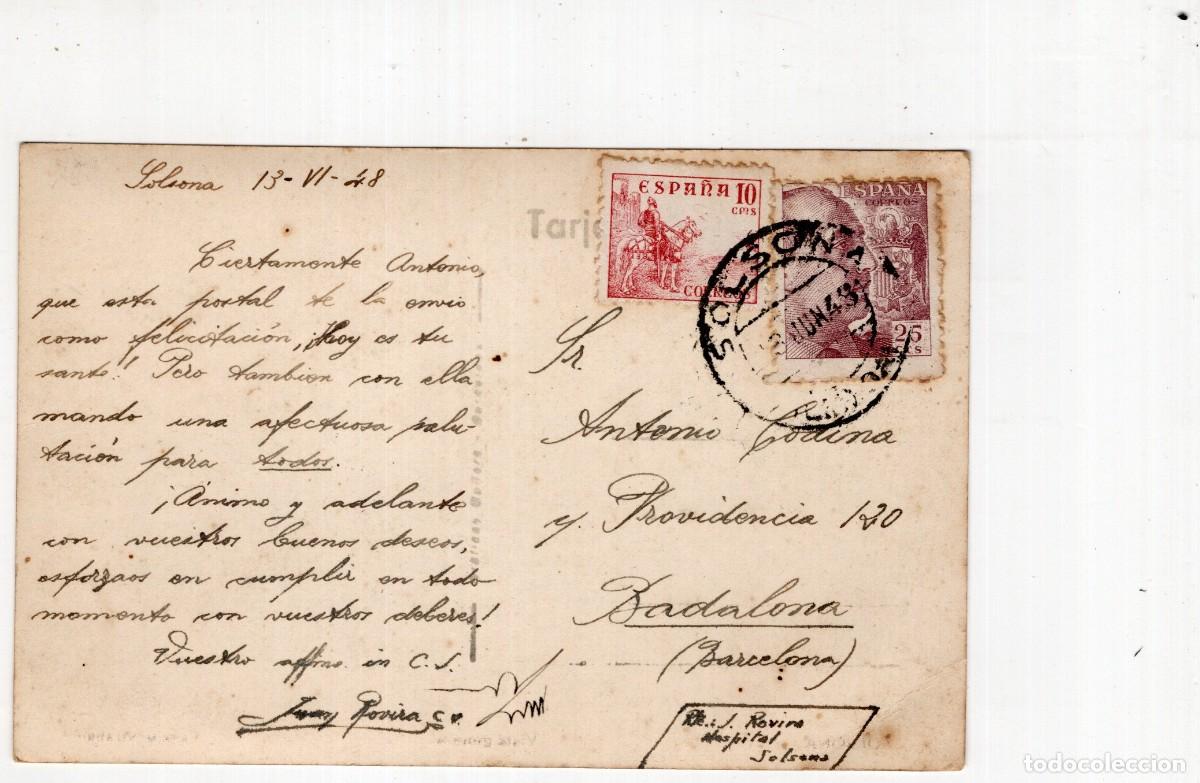 Solsona 13-VI-48
Ciertamente Antonio,
que esta postal te la envio
como felicitación, ¡Hoy es tu
santo! Pero tambien con ella
mando una afectuosa salu-
tación para todos.
¡Ánimo y adelante
con vuestros buenos deseos,
esforzaos en cumplir en todo
momento con vuestros deberes!
Vuestro affmo. in C. J.
Juan Rovira
Tarje
ESPAÑA 10
CMS
CORREOS
ESPAÑA
CORREOS
25
CTS
SOLSONA
JUN 48
Sr.
Antonio Codina
Providencia 120
Badalona
(Barcelona)
Rte.: J. Rovira
Hospital
Solsona
todocoleccion